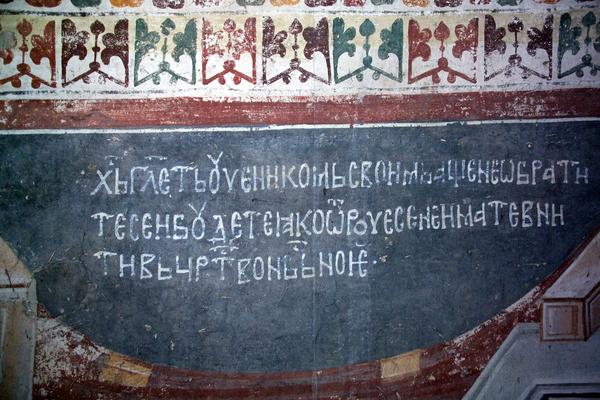 Х҃ЬГЛ҃ЕТЬꙊЧЕНИКОМЬСВОИМЬАЩЕНЕѠБРАТИ
ТЕСЕИБꙊДЕТЕꙖКОѾРОЧЕСЕНЕИМАТЕВНИ
ТИВЬЦР҃ТВОНБ҃ЬНОѤ·